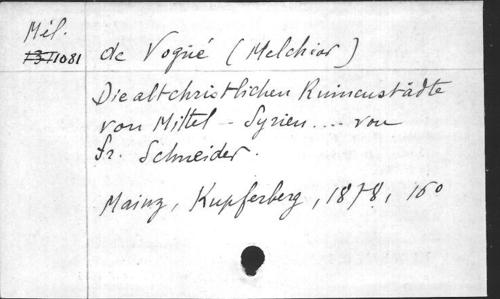 Mél.
1081
de Vogüé (Melchior)
Die altchristlichen Ruinenstädte
von Mittel - Syrien .... von
Fr. Schneider.
Mainz, Kupferberg, 1878, 16°